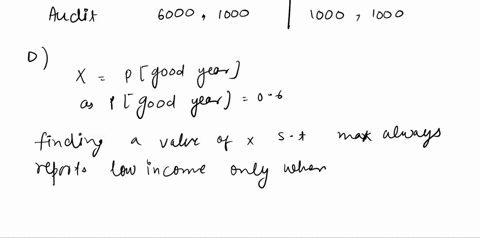 Audit 6000, 1000 | 1000, 1000
D)
X = P[good year]
as P[good year] = 0.6
finding a value of x s.t max always
reports low income only when